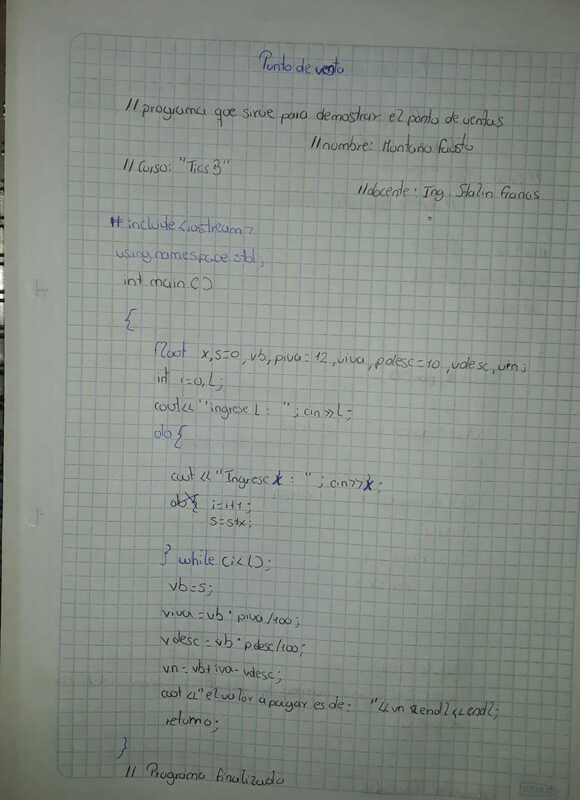 Punto de venta
//programa que sirve para demostrar el punto de ventas
//nombre: Montaño Fausto
//Curso: "Tics 3"
//docente: Ing. Stalin
#include<iostream>
using namespace std;
int main()
{
float x,s=0,vb,piva=12,viva,pdesc=10,vdesc,vn;
int i=0,L;
cout<<"ingrese L: ";cin>>L;
do{
cout<<"Ingrese x: ";cin>>x;
i=i+1;
s=s+x;
} while(i<L);
vb=s;
viva=vb*piva/100;
vdesc=vb*pdesc/100;
vn=vb+iva-vdesc;
cout<<"el valor a pagar es de: "<<vn<<endl<<endl;
return0;
}
// Programa finalizado